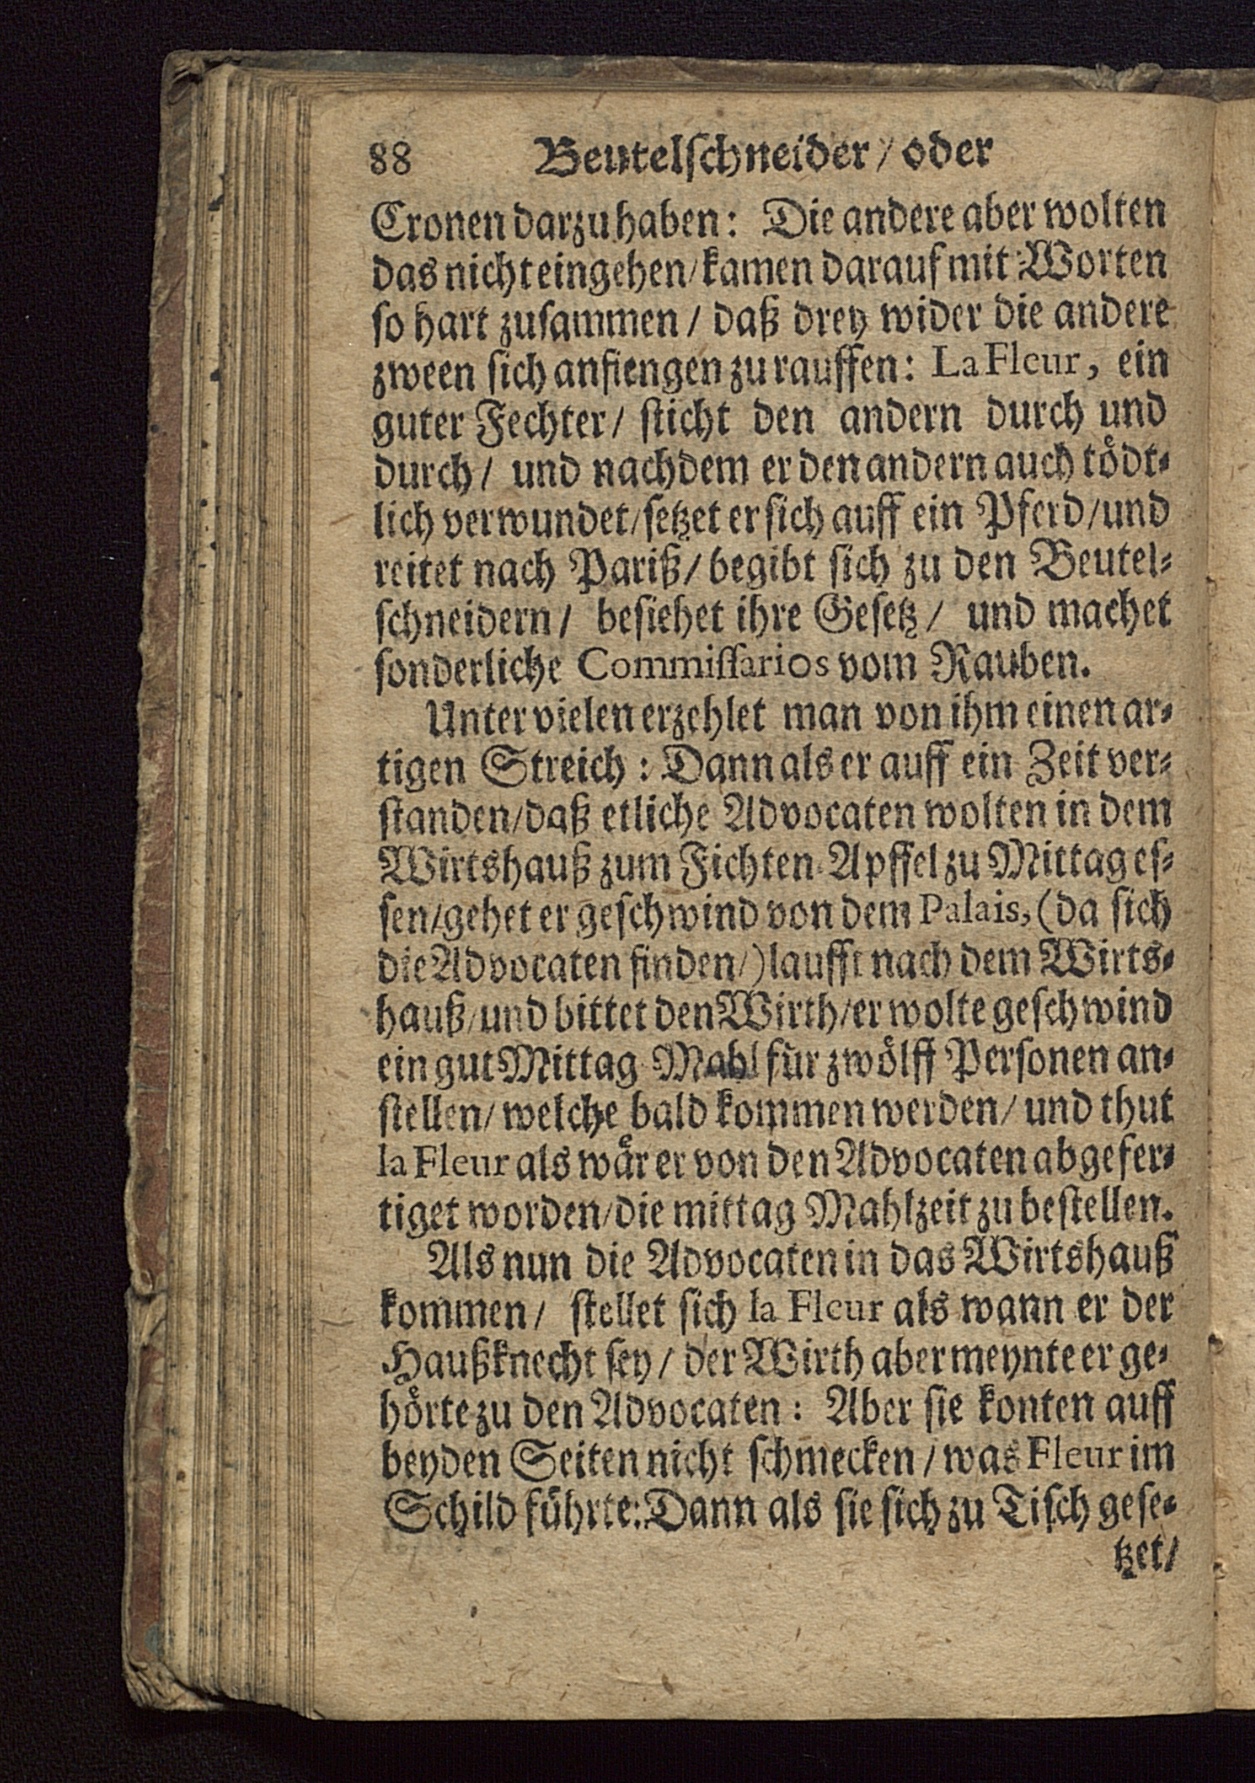 88 Beutelschneider / oder
Cronen darzu haben: Die andere aber wolten
das nicht eingehen / kamen darauf mit Worten
so hart zusammen / daß drey wider die andere
zween sich anfiengen zu rauffen: La Fleur, ein
guter Fechter / sticht den andern durch und
durch / und nachdem er den andern auch tödt⸗
lich verwundet / setzet er sich auff ein Pferd / und
reitet nach Pariß / begibt sich zu den Beutel⸗
schneidern / besiehet ihre Gesetz / und machet
sonderliche Commissarios vom Rauben.
Unter vielen erzehlet man von ihm einen ar⸗
tigen Streich: Dann als er auff ein Zeit ver⸗
standen / daß etliche Advocaten wolten in dem
Wirtshauß zum Fichten Apffel zu Mittag es⸗
sen / gehet er geschwind von dem Palais, (da sich
die Advocaten finden /) laufft nach dem Wirts⸗
hauß / und bittet den Wirth / er wolte geschwind
ein gut Mittag Mahl für zwölff Personen an⸗
stellen / welche bald kommen werden / und thut
la Fleur als wär er von den Advocaten abgefer⸗
tiget worden / die mittag Mahlzeit zu bestellen.
Als nun die Advocaten in das Wirtshauß
kommen / stellet sich la Fleur als wann er der
Haußknecht sey / der Wirth aber meynte er ge⸗
hörte zu den Advocaten: Aber sie konten auff
beyden Seiten nicht schmecken / was Fleur im
Schild führte: Dann als sie sich zu Tisch gese⸗
tzet /